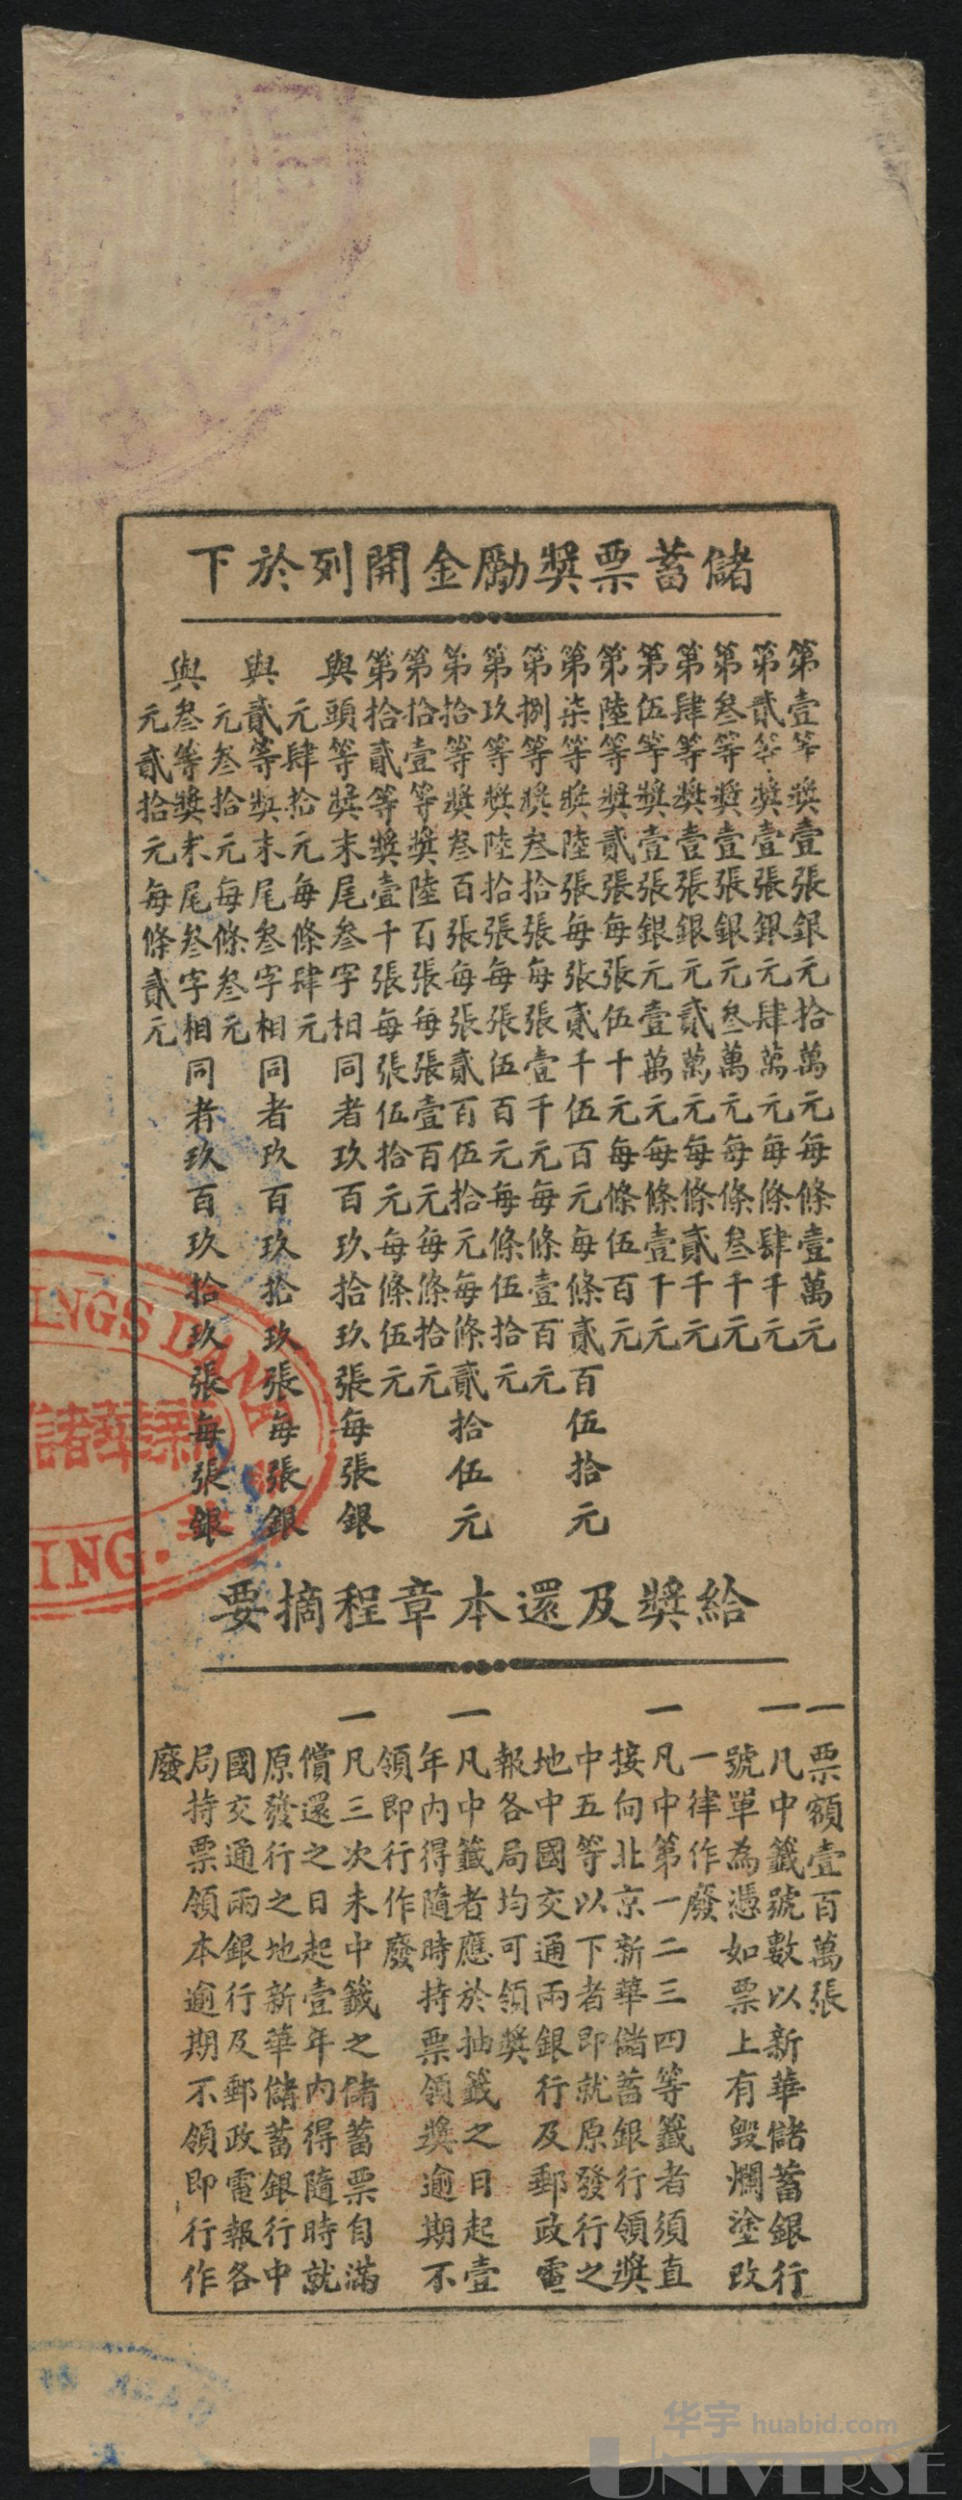 儲蓄票獎勵金開列於下
第壹等獎壹張銀元拾萬元每條壹萬元
第貳等獎壹張銀元肆萬元每條肆千元
第叁等獎壹張銀元叁萬元每條叁千元
第肆等獎壹張銀元貳萬元每條貳千元
第伍等獎壹張銀元壹萬元每條壹千元
第陸等獎貳張每張伍千元每條伍百元
第柒等獎陸張每張貳千伍百元每條貳百伍拾元
第捌等獎叁拾張每張壹千元每條壹百元
第玖等獎陸拾張每張伍百元每條伍拾元
第拾等獎叁百張每張貳百伍拾元每條貳拾伍元
第拾壹等獎陸百張每張壹百元每條拾元
第拾貳等獎壹千張每張伍拾元每條伍元
與頭等獎末尾叁字相同者玖百玖拾玖張每張銀
元肆拾元每條肆元
與貳等獎末尾叁字相同者玖百玖拾玖張每張銀
元叁拾元每條叁元
與叁等獎末尾叁字相同者玖百玖拾玖張每張銀
元貳拾元每條貳元
給獎及還本章程摘要
一票額壹百萬張
一凡中籤號數以新華儲蓄銀行
號單為憑如票上有毀爛塗改
一律作廢
一凡中第一二三四等籤者須直
接向北京新華儲蓄銀行領獎
中五等以下者即就原發行之
地中國交通兩銀行及郵政電
報各局均可領獎
一凡中籤者應於抽籤之日起壹
年內得隨時持票領獎逾期不
領即行作廢
一凡三次未中籤之儲蓄票自滿
償還之日起壹年內得隨時就
原發行之地新華儲蓄銀行中
國交通兩銀行及郵政電報各
局持票領本逾期不領即行作
廢
INGS BAN
新華儲
ING.
华宇 huabid.com
UNIVERSE